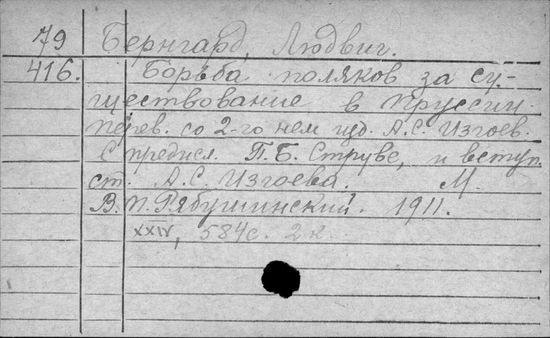 79 Бернгард, Людвиг.
416. Борьба поляков за су-
ществование в Пруссии.
Перев. со 2-го нем. изд. А.С. Изгоев.
С предисл. П.Б. Струве, и вступ.
ст. А.С. Изгоева. М.
В.П. Рябушинский. 1911.
XXIV, 584 с. 2 к.